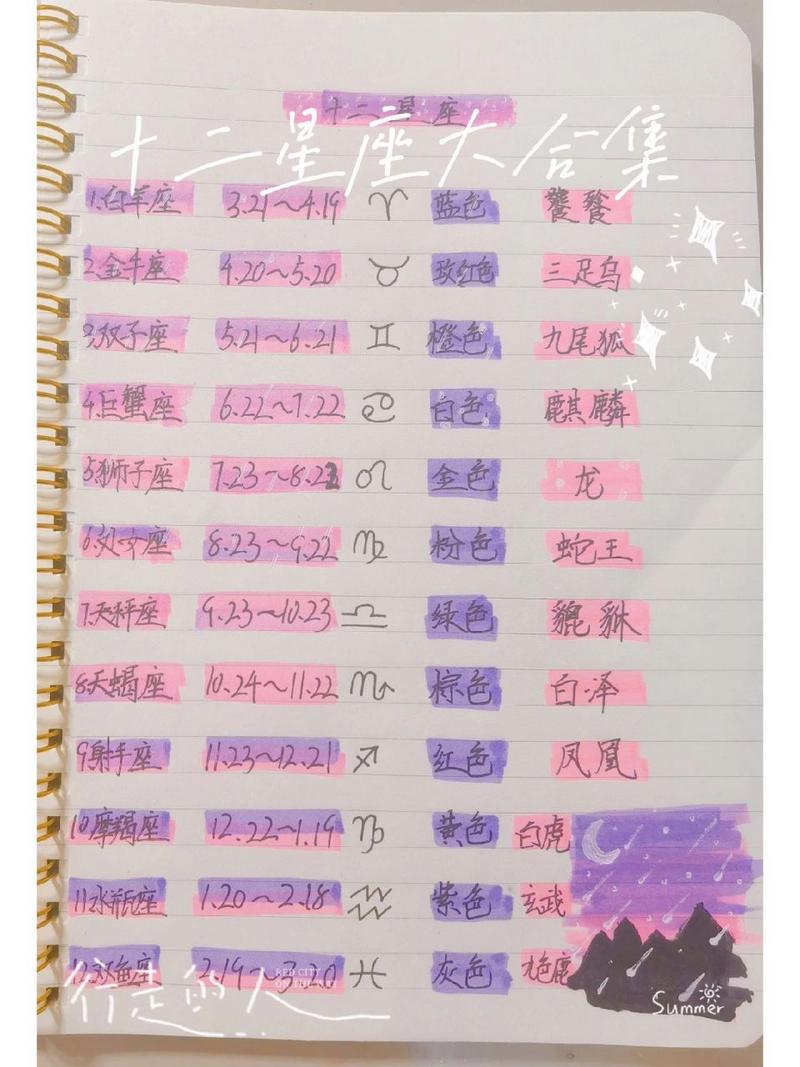 十二星座
十二星座大合集
1.白羊座 3.21~4.19 ♈ 蓝色 饕餮
2.金牛座 4.20~5.20 ♉ 玫红色 三足乌
3.双子座 5.21~6.21 ♊ 橙色 九尾狐
4.巨蟹座 6.22~7.22 ♋ 白色 麒麟
5.狮子座 7.23~8.22 ♌ 金色 龙
6.处女座 8.23~9.22 ♍ 粉色 蛇王
7.天秤座 9.23~10.23 ♎ 绿色 貔貅
8.天蝎座 10.24~11.22 ♏ 棕色 白泽
9射手座 11.23~12.21 ♐ 红色 凤凰
10摩羯座 12.22~1.19 ♑ 黄色 白虎
11水瓶座 1.20~2.18 ♒ 紫色 玄武
12.双鱼座 2.19~3.20 ♓ 灰色 九色鹿
行走的人
RED CITY
Summer